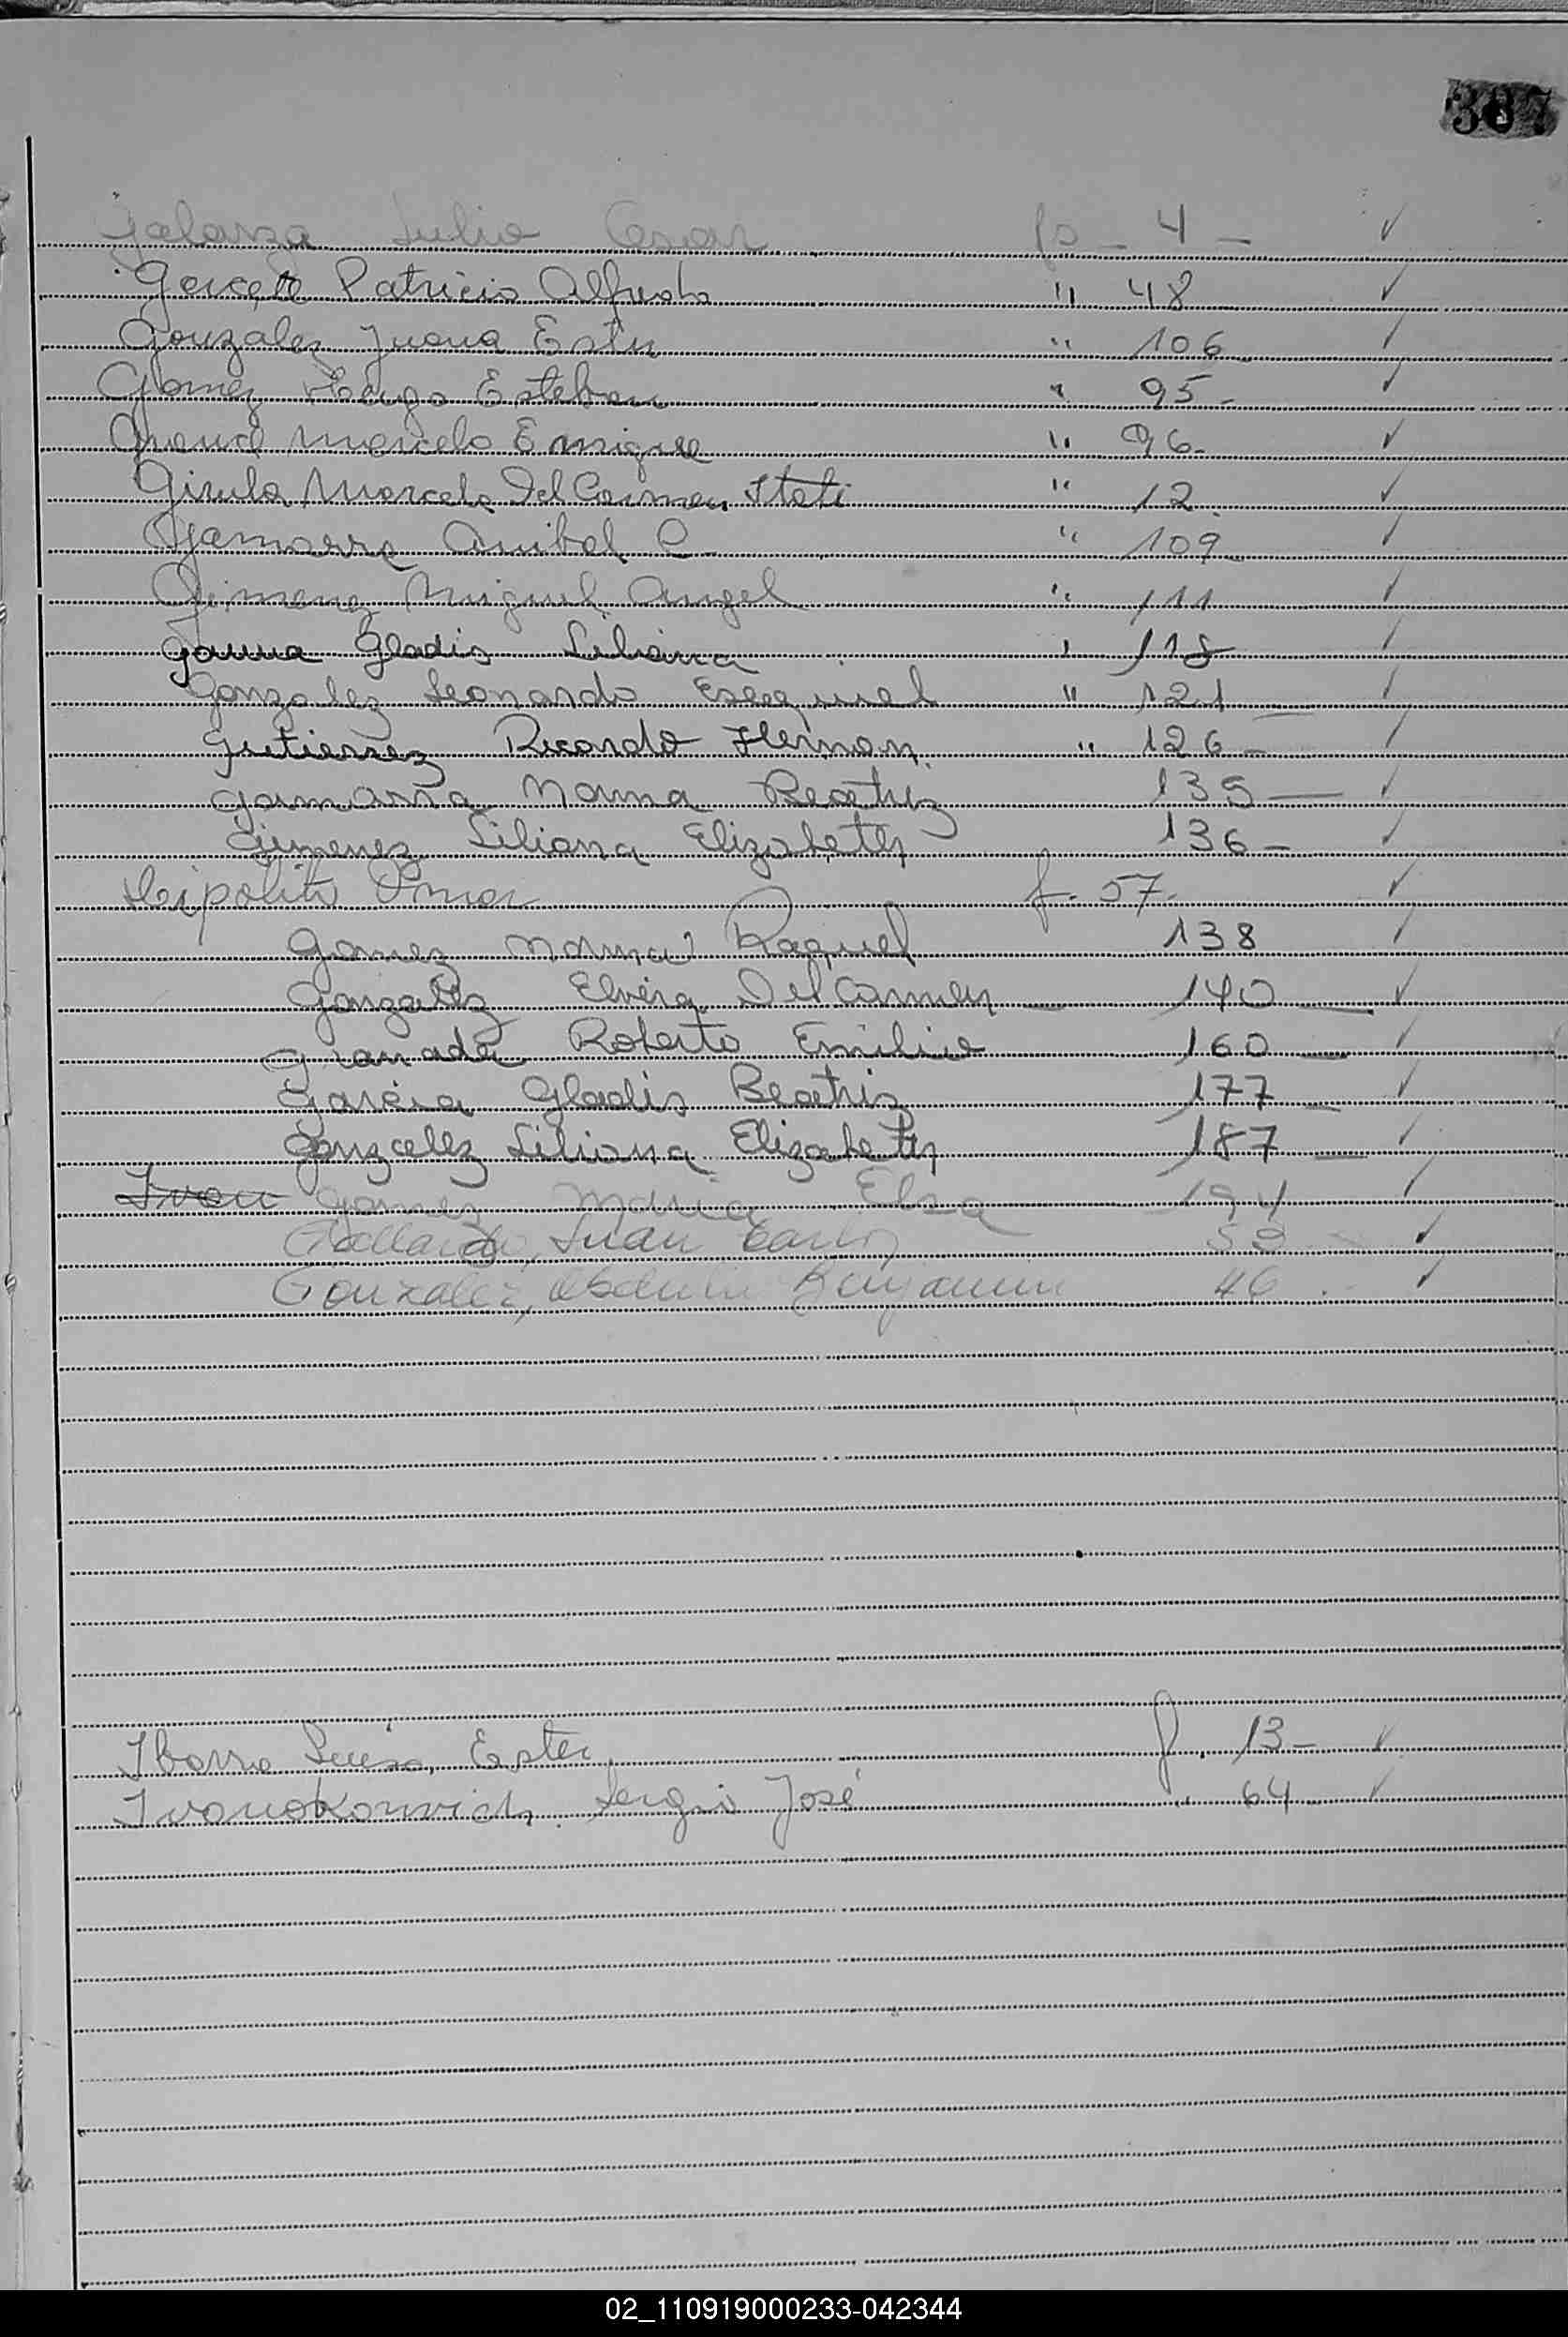 Galarza Julio Cesar fs - 4 - ✓
Gercete Patricio Alfredo " 48 ✓
Gonzalez Juana Ester " 106 ✓
Gomez Hugo Esteban " 95 - ✓
Marcelo Enrique " 96 - ✓
Girula Marcela Del Carmen Itati " 12 ✓
Gamarra Anibal C. " 109 ✓
Gimenez Miguel Angel " 111 ✓
Gauna Gladis Liliana " 118 ✓
Gonzalez Leonardo Esequiel " 121 ✓
Gutierrez Ricardo Hernan " 126 - ✓
Gamarra Norma Beatriz 135 — ✓
Gimenez Liliana Elizabeth 136 - ✓
Hipolito Omar f. 57 - ✓
Gomez Norma Raquel 138 ✓
Gonzalez Elvira Del Carmen — 140 — ✓
Granada Roberto Emilio 160 — ✓
Garcia Gladis Beatriz 177 — ✓
Gonzalez Liliana Elizabeth 187 — ✓
Ivan Gomez Maria Elsa 194 ✓
Gallardo, Juan Carlos 53 ✓
Gonzalez, Benjamin 46 ✓
Ibarra Luisa Ester f. 13 - ✓
Sergio José " 64 ✓
02_110919000233-042344